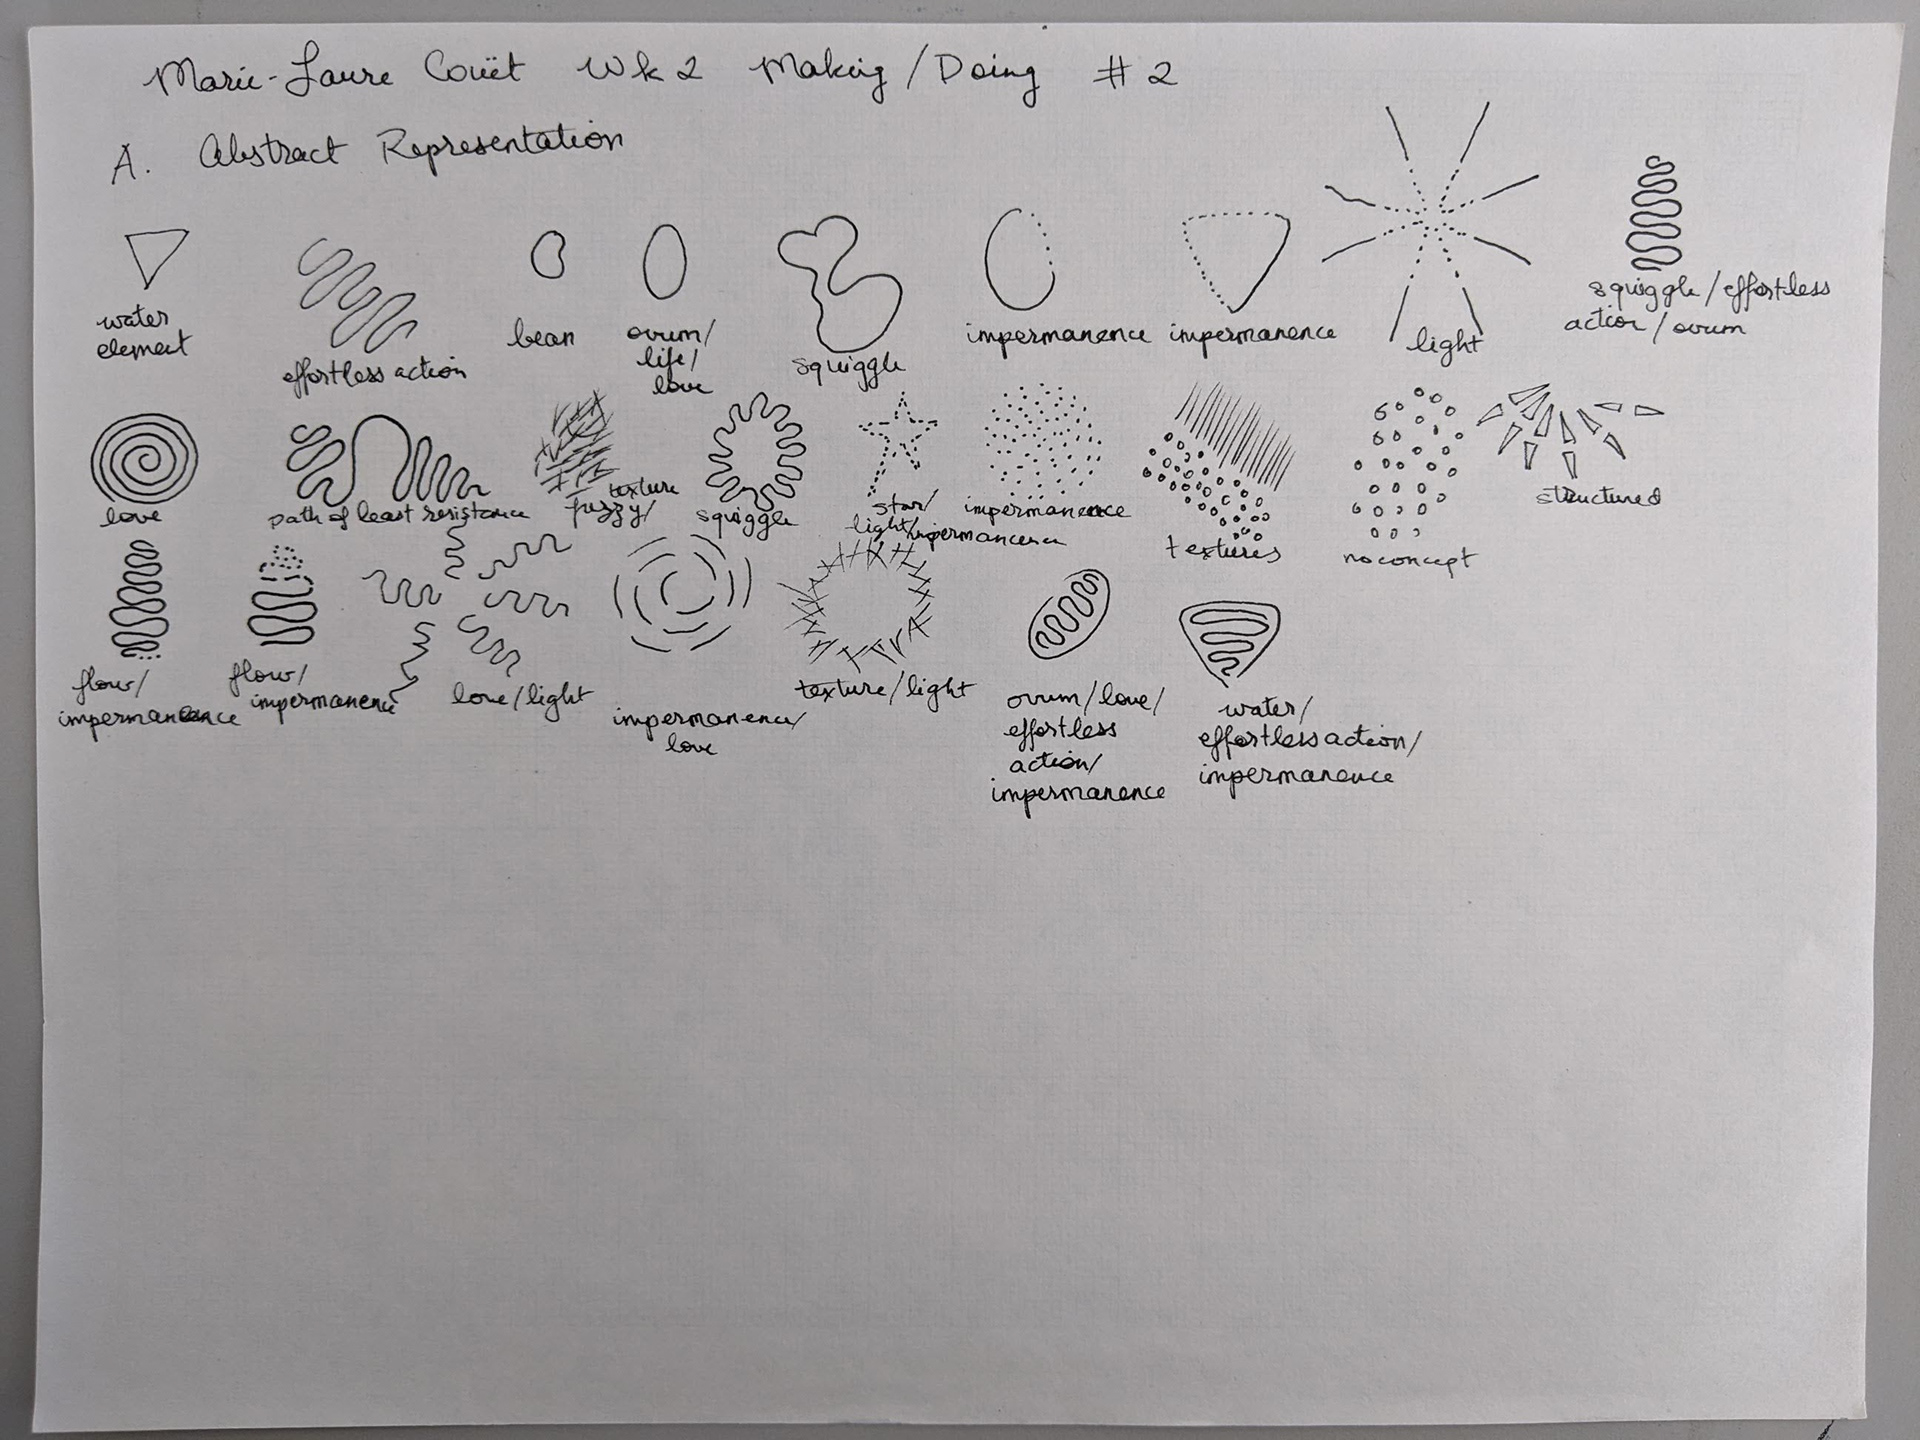 Marie-Laure Couët Wk 2 Making/Doing #2
A. Abstract Representation
water
element
effortless action
bean
ovum/
life/
love
squiggle
impermanence
impermanence
light
squiggle/effortless
action/ovum
love
path of least resistance
texture
fuzzy/
squiggle
star/
light/impermanence
impermanence
textures
no concept
structured
flow/
impermanence
flow/
impermanence
love/light
impermanence/
love
texture/light
ovum/love/
effortless
action/
impermanence
water/
effortless action/
impermanence